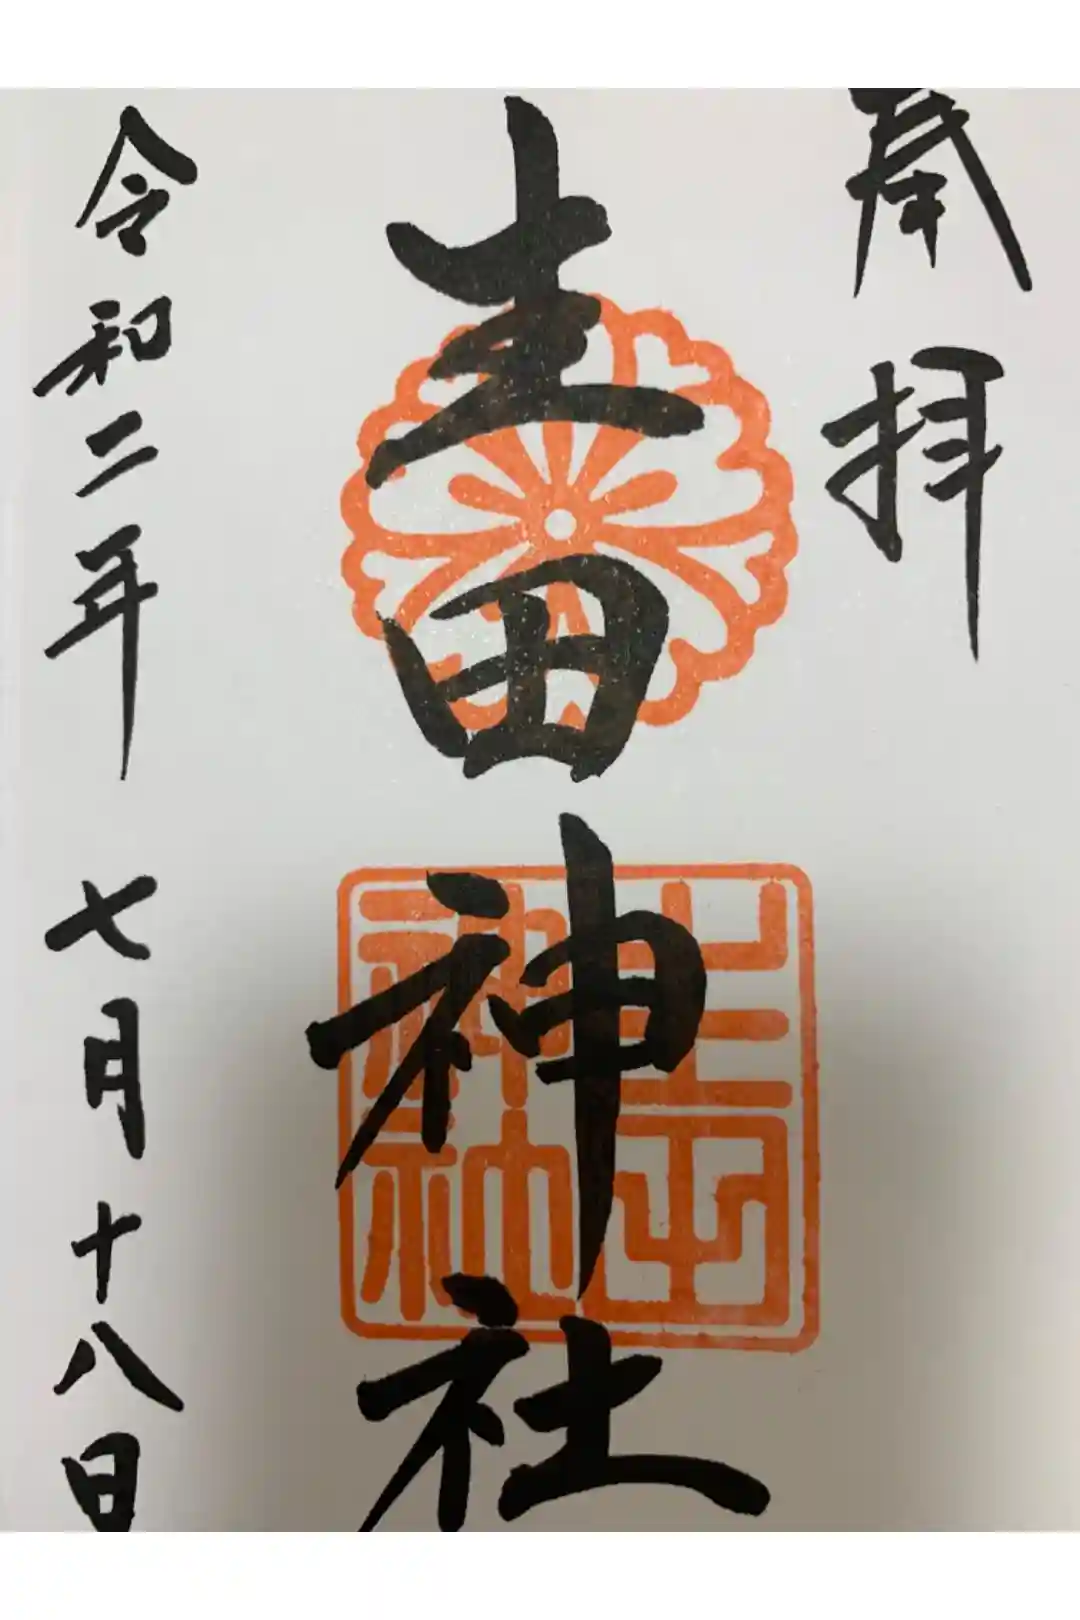 奉拝
生田神社
生田
神社
令和二年 七月十八日